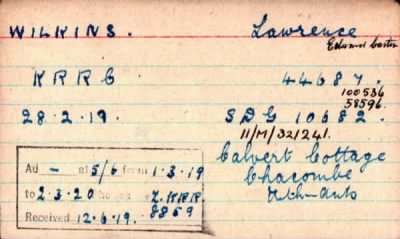 WILKINS. Lawrence
Edward Carter
KRRC 44687.
100536
58596.
28.2.19. SDG 10682.
11/M/321241.
Calvert Cottage
Chacombe
Nth-ants
Ad - at 5/6 from 1.3.19
to 2.3.20 Z.KRR
Received 12.6.19. 8859